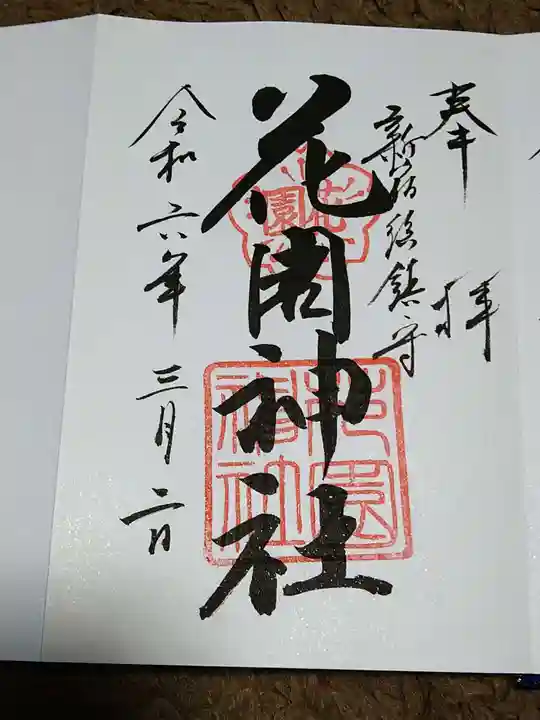 奉拝
新宿総鎮守
花園神社
花園
花園神社
令和六年三月二日